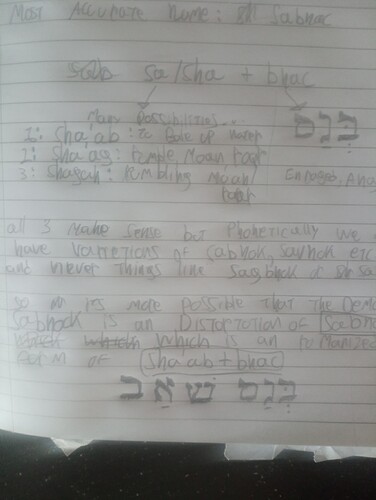 Most Accurate Name: Sabnac
sa/sha + bhac
Main Possibilities...
1: Sha'ab: To
2: Sha'ag: Rumble, Moan, roar
3: Shagah: Rumbling, Moan/
roar
בְּנַס
Enraged,
all 3 Make Sense but Phonetically we
have Variations of Sabnok, Savnok etc
and Never Things like Sagbhock or
so it's more possible that the
Sabnock is an Distortation of
which is an romanized
Form of Sha'ab + bhac
בְּנַס שׁאַב